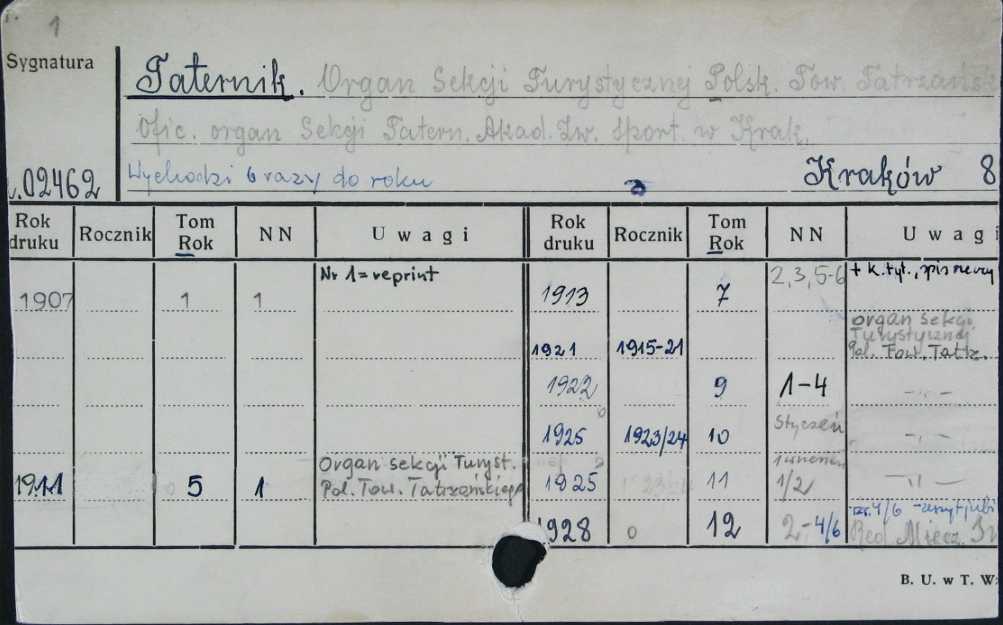 1
Sygnatura
Taternik. Organ Sekcji Turystycznej Polsk. Tow. Tatrzańsk
Ofic. organ Sekcji Tatern. Akad. Zw. Sport. w Krak.
02462 Wychodzi 6 razy do roku Kraków 8
Rok druku Rocznik Tom Rok NN Uwagi Rok druku Rocznik Tom Rok NN Uwagi
1907 1 1 Nr 1 = reprint 1913 7 2,3,5-6 + k. tyt., spis rzeczy
1921 1915-21 Organ Sekcji Turystycznej Pol. Tow. Tatrz.
1922 9 1-4 -"-
1925 1923/24 10 Styczeń -"-
1911 5 1 Organ sekcji Turyst. Pol. Tow. Tatrzańskiego 1925 11 1/2 -"-
1928 0 12 2-4/6 4/6 Red. Miecz.
B. U. w T. W